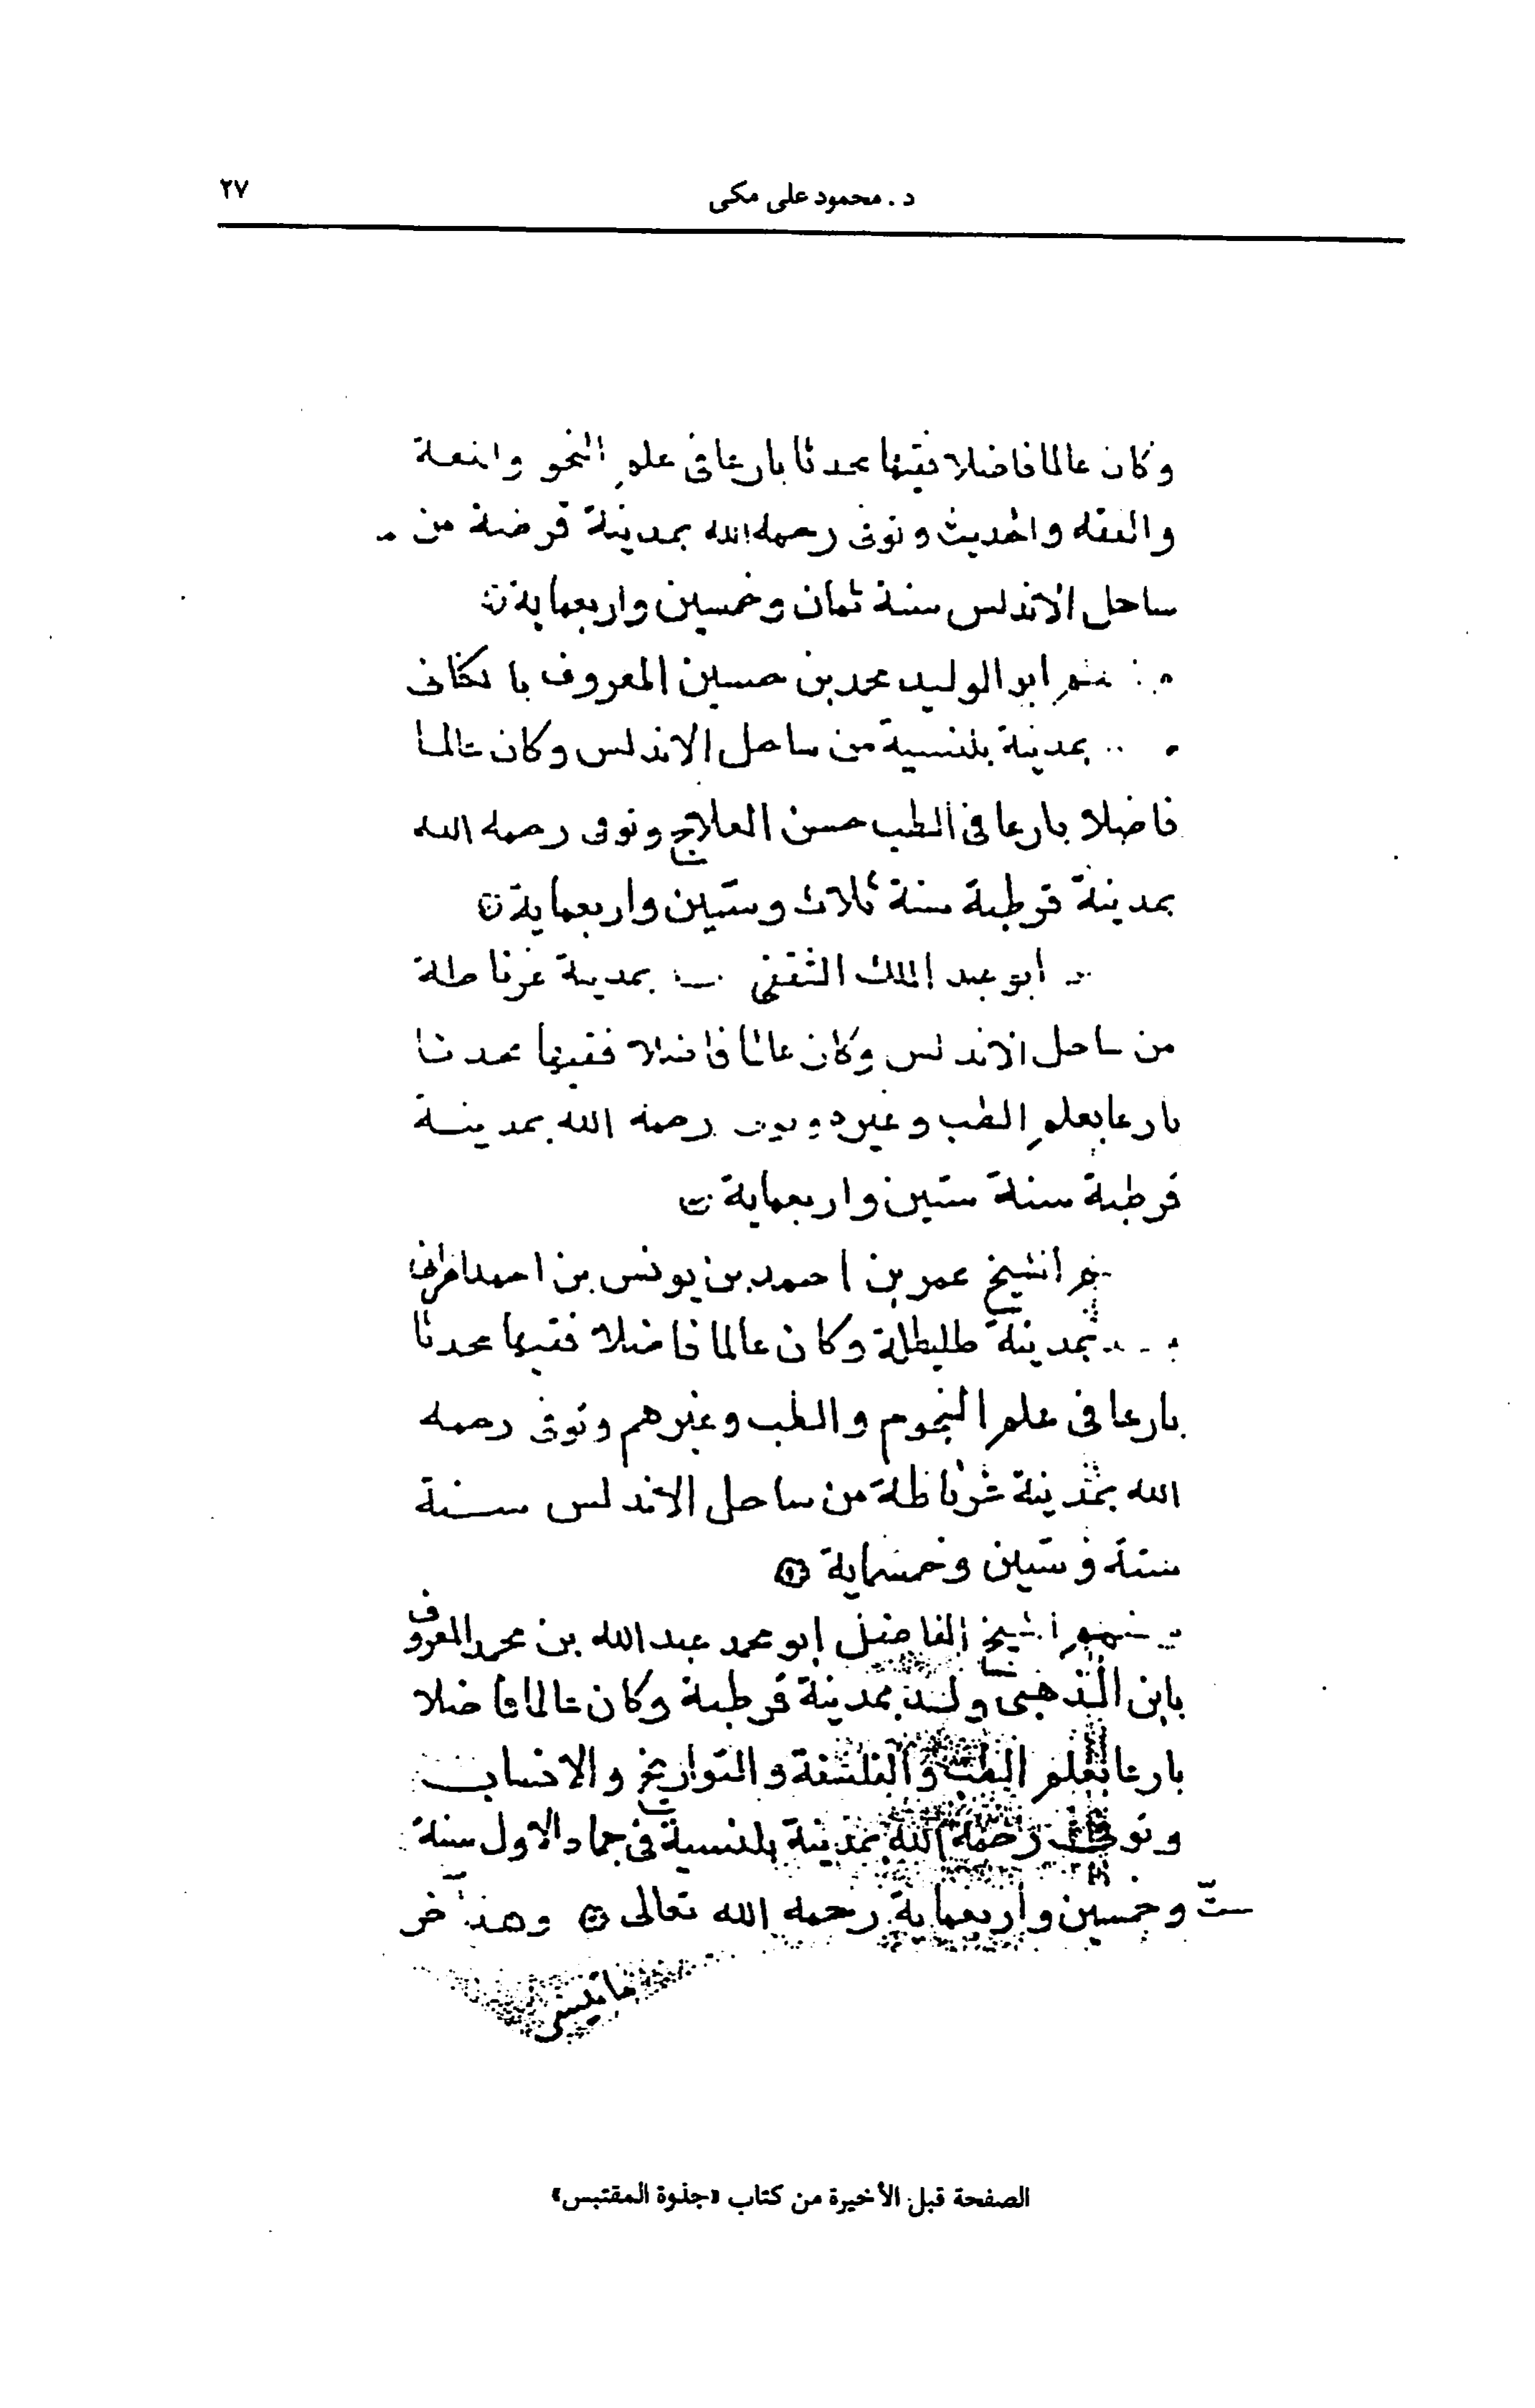 د. محمود على مكى
٢٧
وكان عالما فاضلا فقيها محدثا بارعا فى علم النحو واللغة
والفقه والحديث وتوفى رحمه الله بمدينة قرضة من
ساحل الاندلس سنة ثمان وخمسين واربعماية
منهم ابو الوليد محمد بن حسين المعروف با لكتانى
بمدينة بلنسية من ساحل الاندلس وكان عالما
فاضلا بارعا فى الطب حسن العلاج وتوفى رحمه الله
بمدينة قرطبة سنة ثلاث وستين واربعماية
ابو عبد الملك الثقفى بمدينة غرناطة
من ساحل الاندلس وكان عالما فاضلا فقيها محدثا
بارعا بعلم الطب وغيره وتوفى رحمه الله بمدينة
قرطبة سنة ستين واربعماية
الشيخ عمر بن احمد بن يونس بن احمد
بمدينة طليطلة وكان عالما فاضلا فقيها محدثا
بارعا فى علم النجوم والطب وغيرهم وتوفى رحمه
الله بمدينة غرناطة من ساحل الاندلس سنة
ستة وستين وخمسماية
منهم الشيخ الفاضل ابو محمد عبد الله بن محمد المعروف
بابن الذهبى ولد بمدينة قرطبة وكان عالما فاضلا
بارعا بعلم الطب والفلسفة والتواريخ والانساب
وتوفى رحمه الله بمدينة بلنسية فى جماد الاول سنة
ستّ وخمسين واربعماية رحمه الله تعالى وهذا آخر
الصفحة قبل الأخيرة من كتاب «جذوة المقتبس»